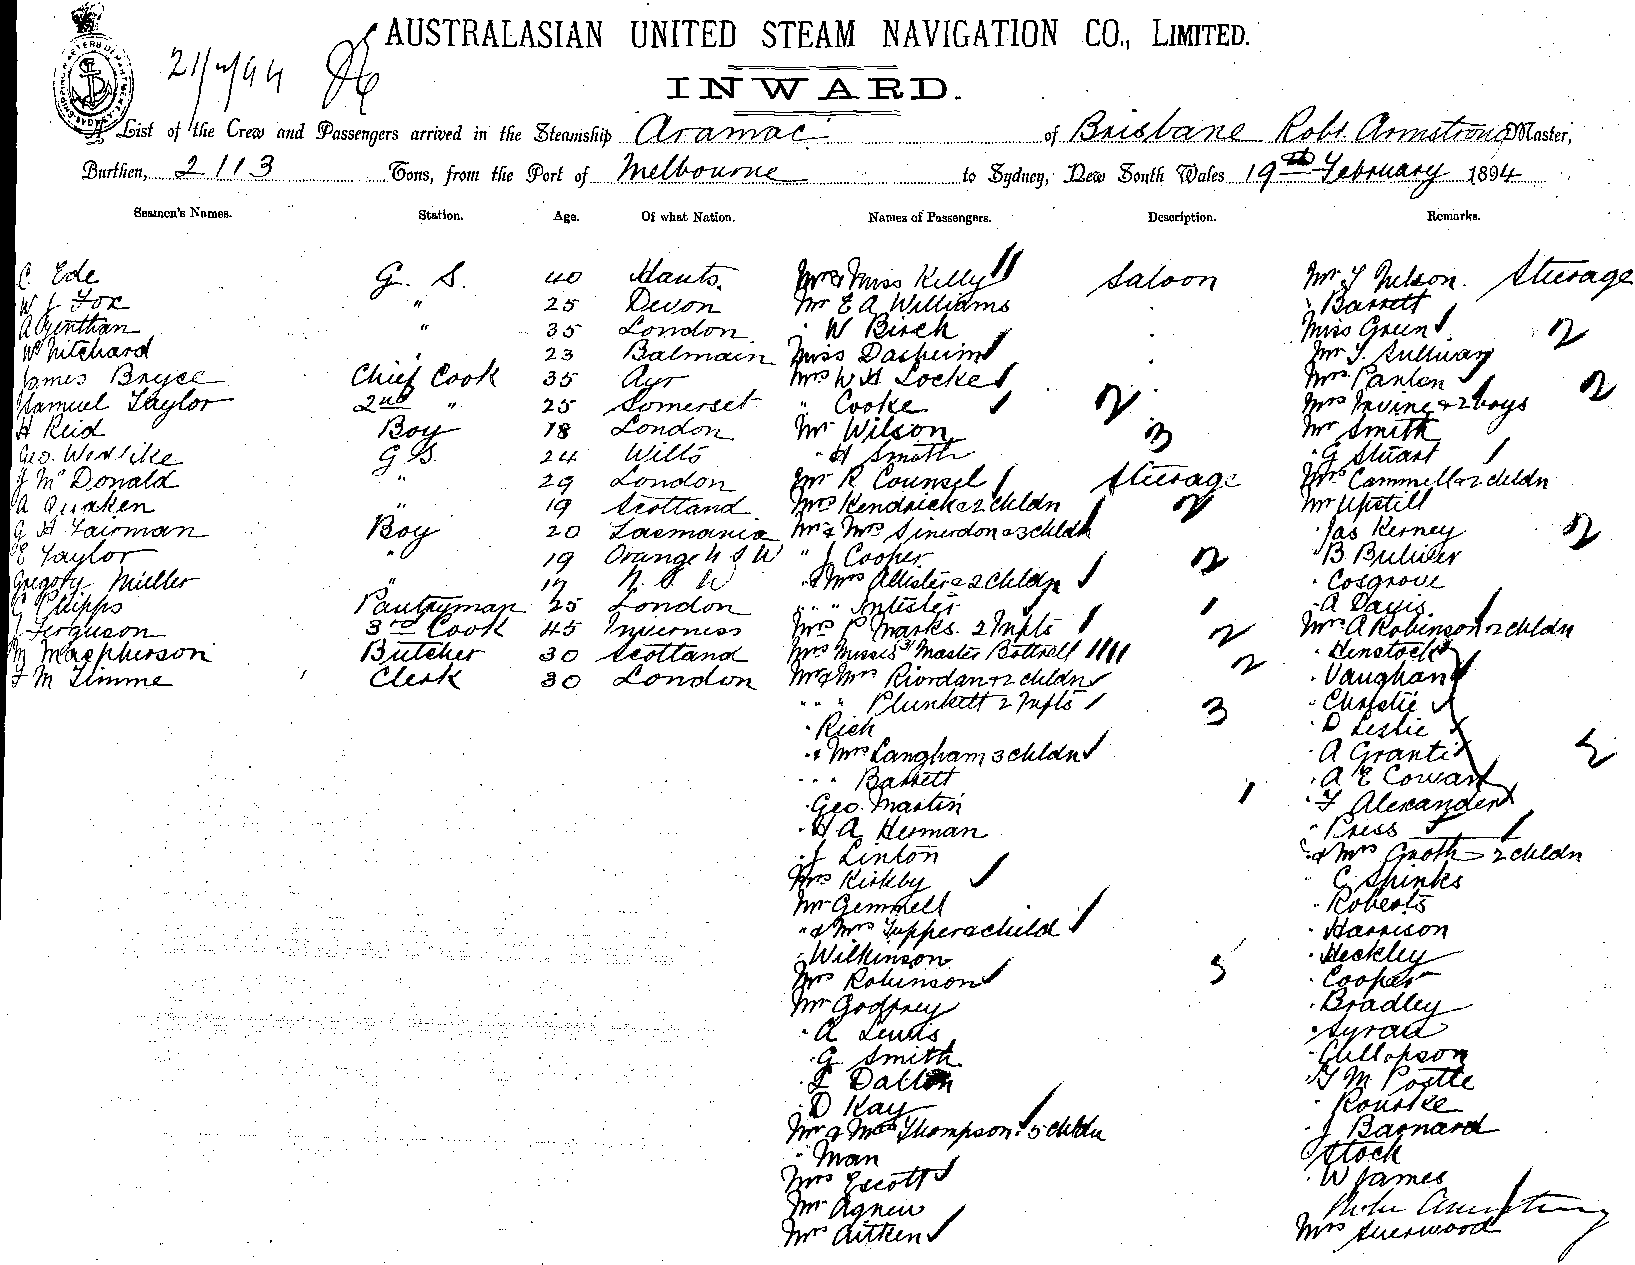 AUSTRALASIAN UNITED STEAM NAVIGATION CO., LIMITED.
21/2/94
INWARD.
A List of the Crew and Passengers arrived in the Steamship Aramac of Brisbane Robt. Armstrong Master,
Burthen, 2113 Tons, from the Port of Melbourne to Sydney, New South Wales 19th February 1894
Seamen's Names. Station. Age. Of what Nation. Names of Passengers. Description. Remarks.
C Ede G. S. 40 Hants. Mrs & Miss Kelly Saloon Mr T Nelson. Steerage
W J Fox " 25 Devon Mr E A Williams " Barrett
A Genthan " 35 London " W Birch Miss Green 2
Wm Pitchard 23 Balmain Miss Dasheim Mr T. Sullivan
James Bryce Chief Cook 35 Ayr Mrs W H Locke Mrs Panton 2
Samuel Taylor 2nd " 25 Somerset " Cooke 2 Mrs Irvine & 2 boys
H Reid Boy 18 London Mr Wilson 3 Mr Smith
Geo. G S. 24 Wilts " H Smith " G Stuart
J McDonald " 29 London Mr R Counsel Steerage Mrs Cammell & 2 childn
A Quaken " 19 Scotland Mrs Kendrick & 2 childn 2 Mr Upstill
G H Fairman Boy 20 Tasmania Mr & Mrs Sinerdon & 3 childn " Jas Kerney 2
E Taylor " 19 Orange N S W " J Cooper 2 " B Bulwer
Gregory Mueller " 17 N. S W " & Mrs Allister & 2 childn " Cosgrove
C Phipps Pantryman 25 London " " " 1 " A Davis.
J Ferguson 3rd Cook 45 Inverness Mrs P Marks. 2 Infts 2 Mrs A Robinson & 2 childn
M Macpherson Butcher 30 Scotland Mrs Misses 3 Master Bottrell 2 " Henstock
F M Timme Clerk 30 London Mr & Mrs Riordan & 2 childn " Vaughan
" " " Plunkett 2 Infts 3 " Christie
" Rich " D Leslie
" & Mrs Langham 3 childn " A Grant
" " " Barrett " A E Cowan
" Geo. Martin 1 " F Alexander
" H A Herman " Press
" J Linton " & Mrs Groth 2 childn
Mrs Kirkby " C Spinks
Mr Gemmell " Roberts
" & Mrs Tupper & child " Harrison
" Wilkinson 5 " Heckley
Mrs Robinson " Cooper
Mr Godfrey " Bradley
" A Lewis
" G Smith
" Dalton " T M Postle
" D Kay " Rourke
Mr & Mrs Thompson. 5 childn " J Barnard
" Man " Stock
Mrs Escott " W James
Mr Agnew Robt Armstrong
Mrs Aitken Mrs Sherwood